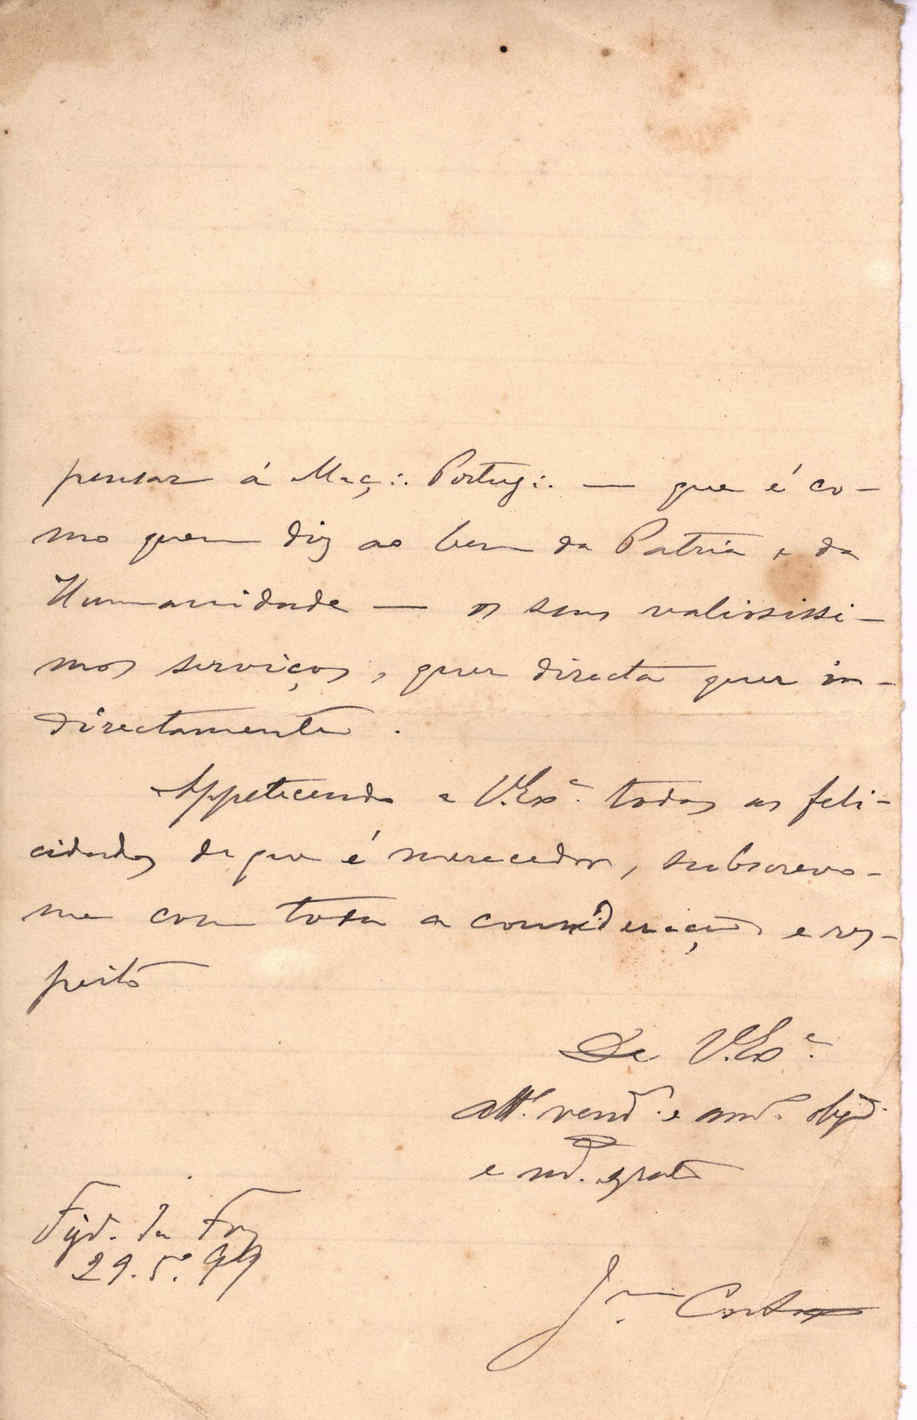 pensar á Maç∴ Portug∴ — que é co-
mo quem diz ao bem da Patria e da
Humanidade — os seus valiosissi-
mos serviços, quer directa quer in-
directamente.
Appetecendo a V. Exª. todas as feli-
cidades de que é merecedor, subscrevo-
me com toda a consideração e res-
peito
De V. Exª.
Attº. venº. e amº. obgdº.
e mº. grato
Figª. da Foz
29.5º.99
Costa